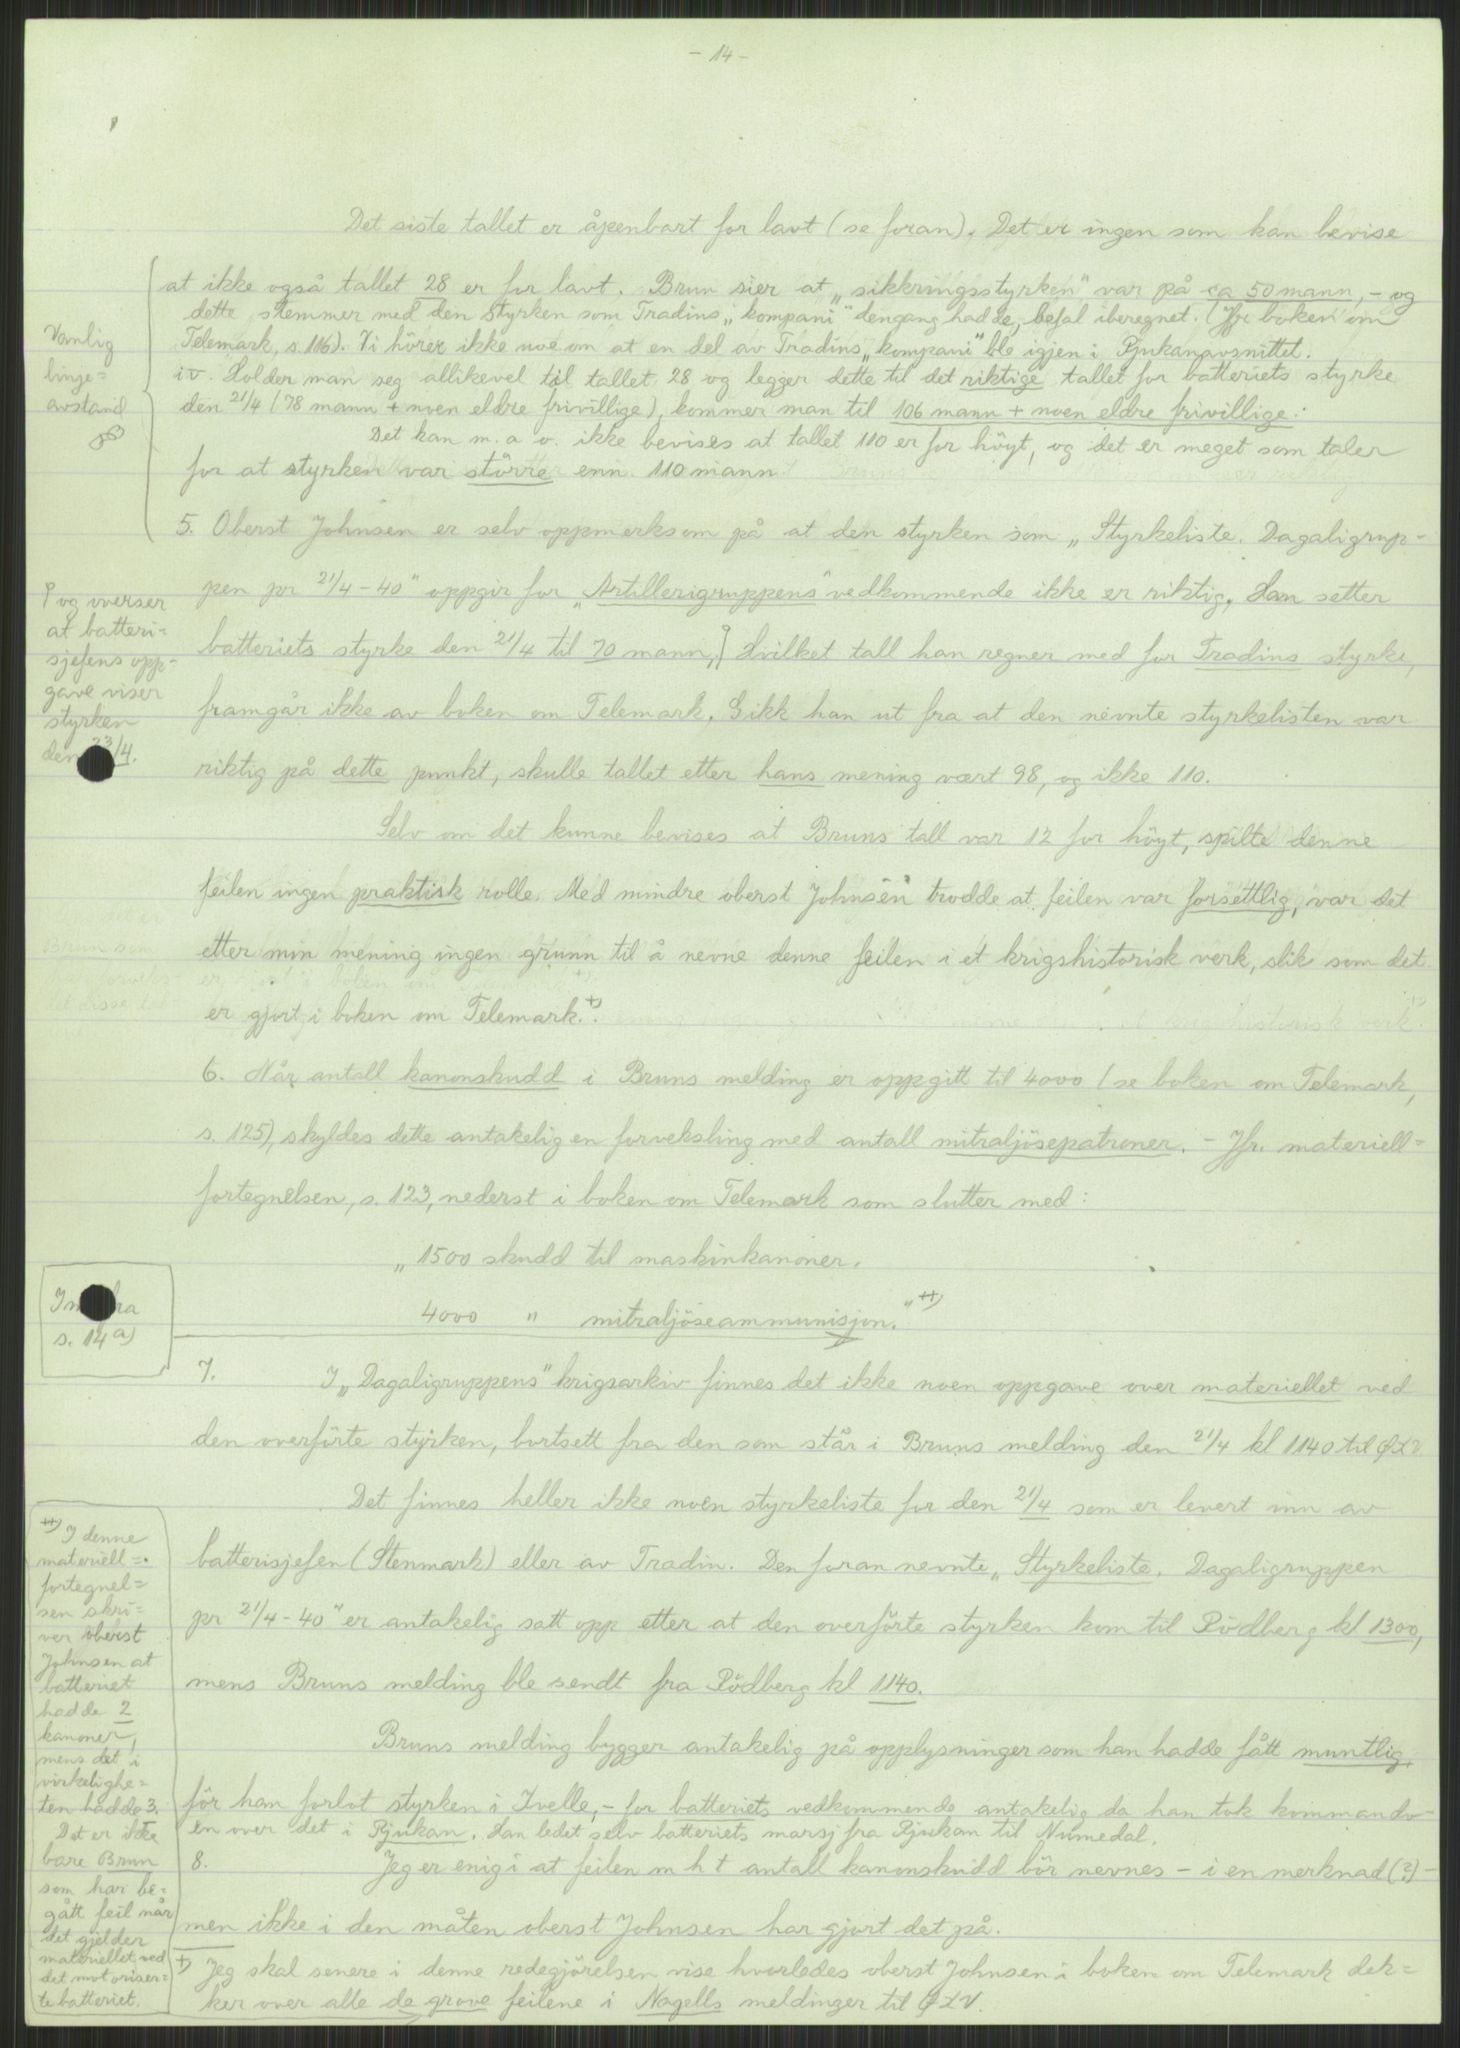 - 14 -
Det siste tallet er åpenbart for lavt (se foran). Det er ingen som kan bevise
at ikke også tallet 28 er for lavt. Brun sier at „sikkringsstyrken" var på ca 50 mann, - og
dette stemmer med den styrken som Tradins „kompani" dengang hadde, befal iberegnet. (Jfr boken om
Telemark, s. 116). Vi hörer ikke noe om at en del av Tradins „kompani" ble igjen i Rjukanavsnittet.
iv. Holder man seg allikevel til tallet 28 og legger dette til det riktige tallet for batteriets styrke
den 21/4 (78 mann + noen eldre frivillige), kommer man til 106 mann + noen eldre frivillige.
Det kan m. a o. ikke bevises at tallet 110 er for höyt, og det er meget som taler
for at styrken var större enn 110 mann.
Vanlig
linje=
avstand
5. Oberst Johnsen er selv oppmerksom på at den styrken som „Styrkeliste. Dagaligrup-
pen pr 21/4 - 40" oppgir for „Artillerigruppens" vedkommende ikke er riktig. Han setter
batteriets styrke den 21/4 til 70 mann,] Hvilket tall han regner med for Tradins styrke,
framgår ikke av boken om Telemark. Gikk han ut fra at den nevnte styrkelisten var
riktig på dette punkt, skulle tallet etter hans mening vært 98, og ikke 110.
og overser
at batteri=
sjefens opp-
gave viser
styrken
den 23/4.
Selv om det kunne bevises at Bruns tall var 12 for höyt, spilte denne
feilen ingen praktisk rolle. Med mindre oberst Johnsen trodde at feilen var forsettlig, var det
etter min mening ingen grunn til å nevne denne feilen i et krigshistorisk verk, slik som det
er gjort i boken om Telemark. +)
6. Når antall kanonskudd i Bruns melding er oppgitt til 4000 (se boken om Telemark,
s. 125), skyldes dette antakelig en forveksling med antall mitraljösepatroner. - Jfr. materiell=
fortegnelsen, s. 123, nederst i boken om Telemark som slutter med:
„1500 skudd til maskinkanoner.
4000 " mitraljöseammunisjon." ++)
s. 14 a)
7. I „Dagaligruppens" krigsarkiv finnes det ikke noen oppgave over materiellet ved
den overförte styrken, bortsett fra den som står i Bruns melding den 21/4 kl 1140 til ØLV
Det finnes heller ikke noen styrkeliste for den 21/4 som er levert inn av
batterisjefen (Stenmark) eller av Tradin. Den foran nevnte „Styrkeliste. Dagaligruppen
pr 21/4 - 40" er antakelig satt opp etter at den overförte styrken kom til Rödberg kl 1300,
mens Bruns melding ble sendt fra Rödberg kl 1140.
Bruns melding bygger antakelig på opplysninger som han hadde fått muntlig,
för han forlot styrken i Ivelle, - for batteriets vedkommende antakelig da han tok kommando-
en over det i Rjukan. Han ledet selv batteriets marsj fra Rjukan til Numedal.
8. Jeg er enig i at feilen m h t antall kanonskudd bör nevnes - i en merknad (?) -
men ikke i den måten oberst Johnsen har gjort det på.
++) I denne
materiell=
fortegnel=
sen skri=
ver oberst
Johnsen at
batteriet
hadde 2
kanoner,
mens det i
virkelighe=
ten hadde 3.
Det er ikke
bare Brun
som har be=
gått feil når
det gjelder
materiellet ved
det motoriser=
te batteriet.
+) Jeg skal senere i denne redegjörelsen vise hvorledes oberst Johnsen i boken om Telemark dek=
ker over alle de grove feilene i Nagells meldinger til ØLV.